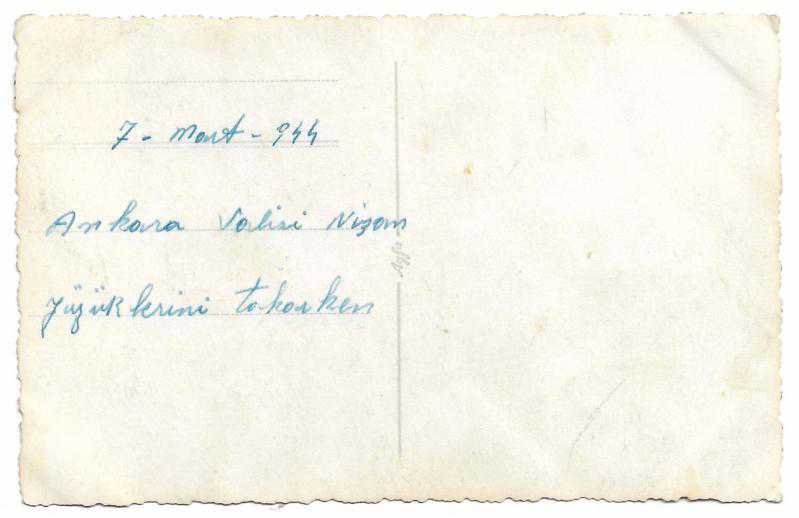 7 - Mart - 944
Ankara Valisi Nişan
yüzüklerini takarken
Agfa